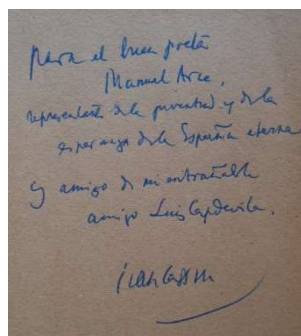 Para el buen poeta
Manuel Arce,
representante de la juventud y de la
esperanza de la España eterna
y amigo de mi entrañable
amigo Luis Capdevila.